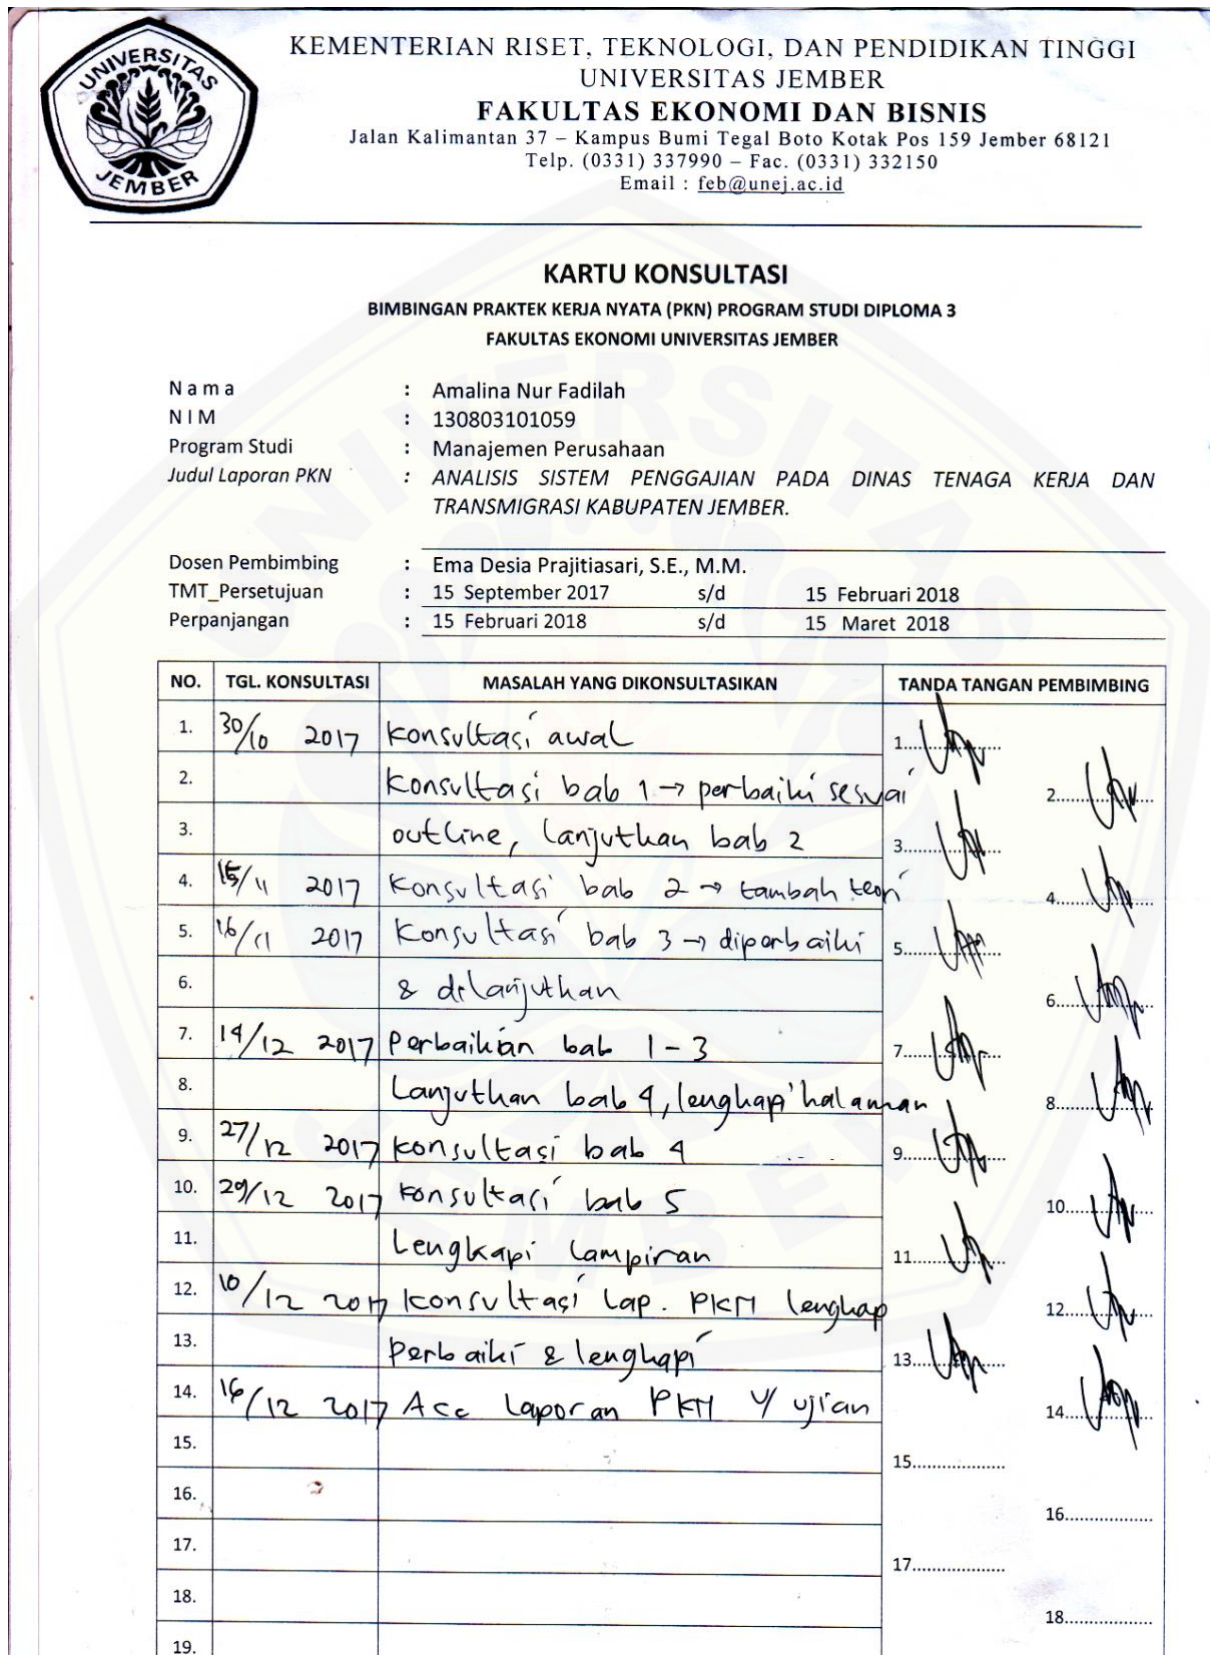 UNIVERSITAS
JEMBER
KEMENTERIAN RISET, TEKNOLOGI, DAN PENDIDIKAN TINGGI
UNIVERSITAS JEMBER
FAKULTAS EKONOMI DAN BISNIS
Jalan Kalimantan 37 – Kampus Bumi Tegal Boto Kotak Pos 159 Jember 68121
Telp. (0331) 337990 – Fac. (0331) 332150
Email : feb@unej.ac.id
KARTU KONSULTASI
BIMBINGAN PRAKTEK KERJA NYATA (PKN) PROGRAM STUDI DIPLOMA 3
FAKULTAS EKONOMI UNIVERSITAS JEMBER
N a m a : Amalina Nur Fadilah
N I M : 130803101059
Program Studi : Manajemen Perusahaan
Judul Laporan PKN : ANALISIS SISTEM PENGGAJIAN PADA DINAS TENAGA KERJA DAN
TRANSMIGRASI KABUPATEN JEMBER.
Dosen Pembimbing : Ema Desia Prajitiasari, S.E., M.M.
TMT_Persetujuan : 15 September 2017 s/d 15 Februari 2018
Perpanjangan : 15 Februari 2018 s/d 15 Maret 2018
NO. TGL. KONSULTASI MASALAH YANG DIKONSULTASIKAN TANDA TANGAN PEMBIMBING
1. 30/10 2017 Konsultasi awal 1....
2. Konsultasi bab 1 → perbaiki sesuai 2....
3. outline, lanjutkan bab 2 3....
4. 15/11 2017 Konsultasi bab 2 → tambah teori 4....
5. 16/11 2017 Konsultasi bab 3 → diperbaiki 5....
6. & dilanjutkan 6....
7. 14/12 2017 Perbaikian bab 1 - 3 7....
8. Lanjutkan bab 4, lengkapi halaman 8....
9. 27/12 2017 Konsultasi bab 4 9....
10. 29/12 2017 Konsultasi bab 5 10....
11. Lengkapi Lampiran 11....
12. 10/12 2017 Konsultasi Lap. PKN lengkap 12....
13. Perbaiki & lengkapi 13....
14. 16/12 2017 Acc Laporan PKN u/ ujian 14....
15. 15...................
16. 16...................
17. 17...................
18. 18...................
19.